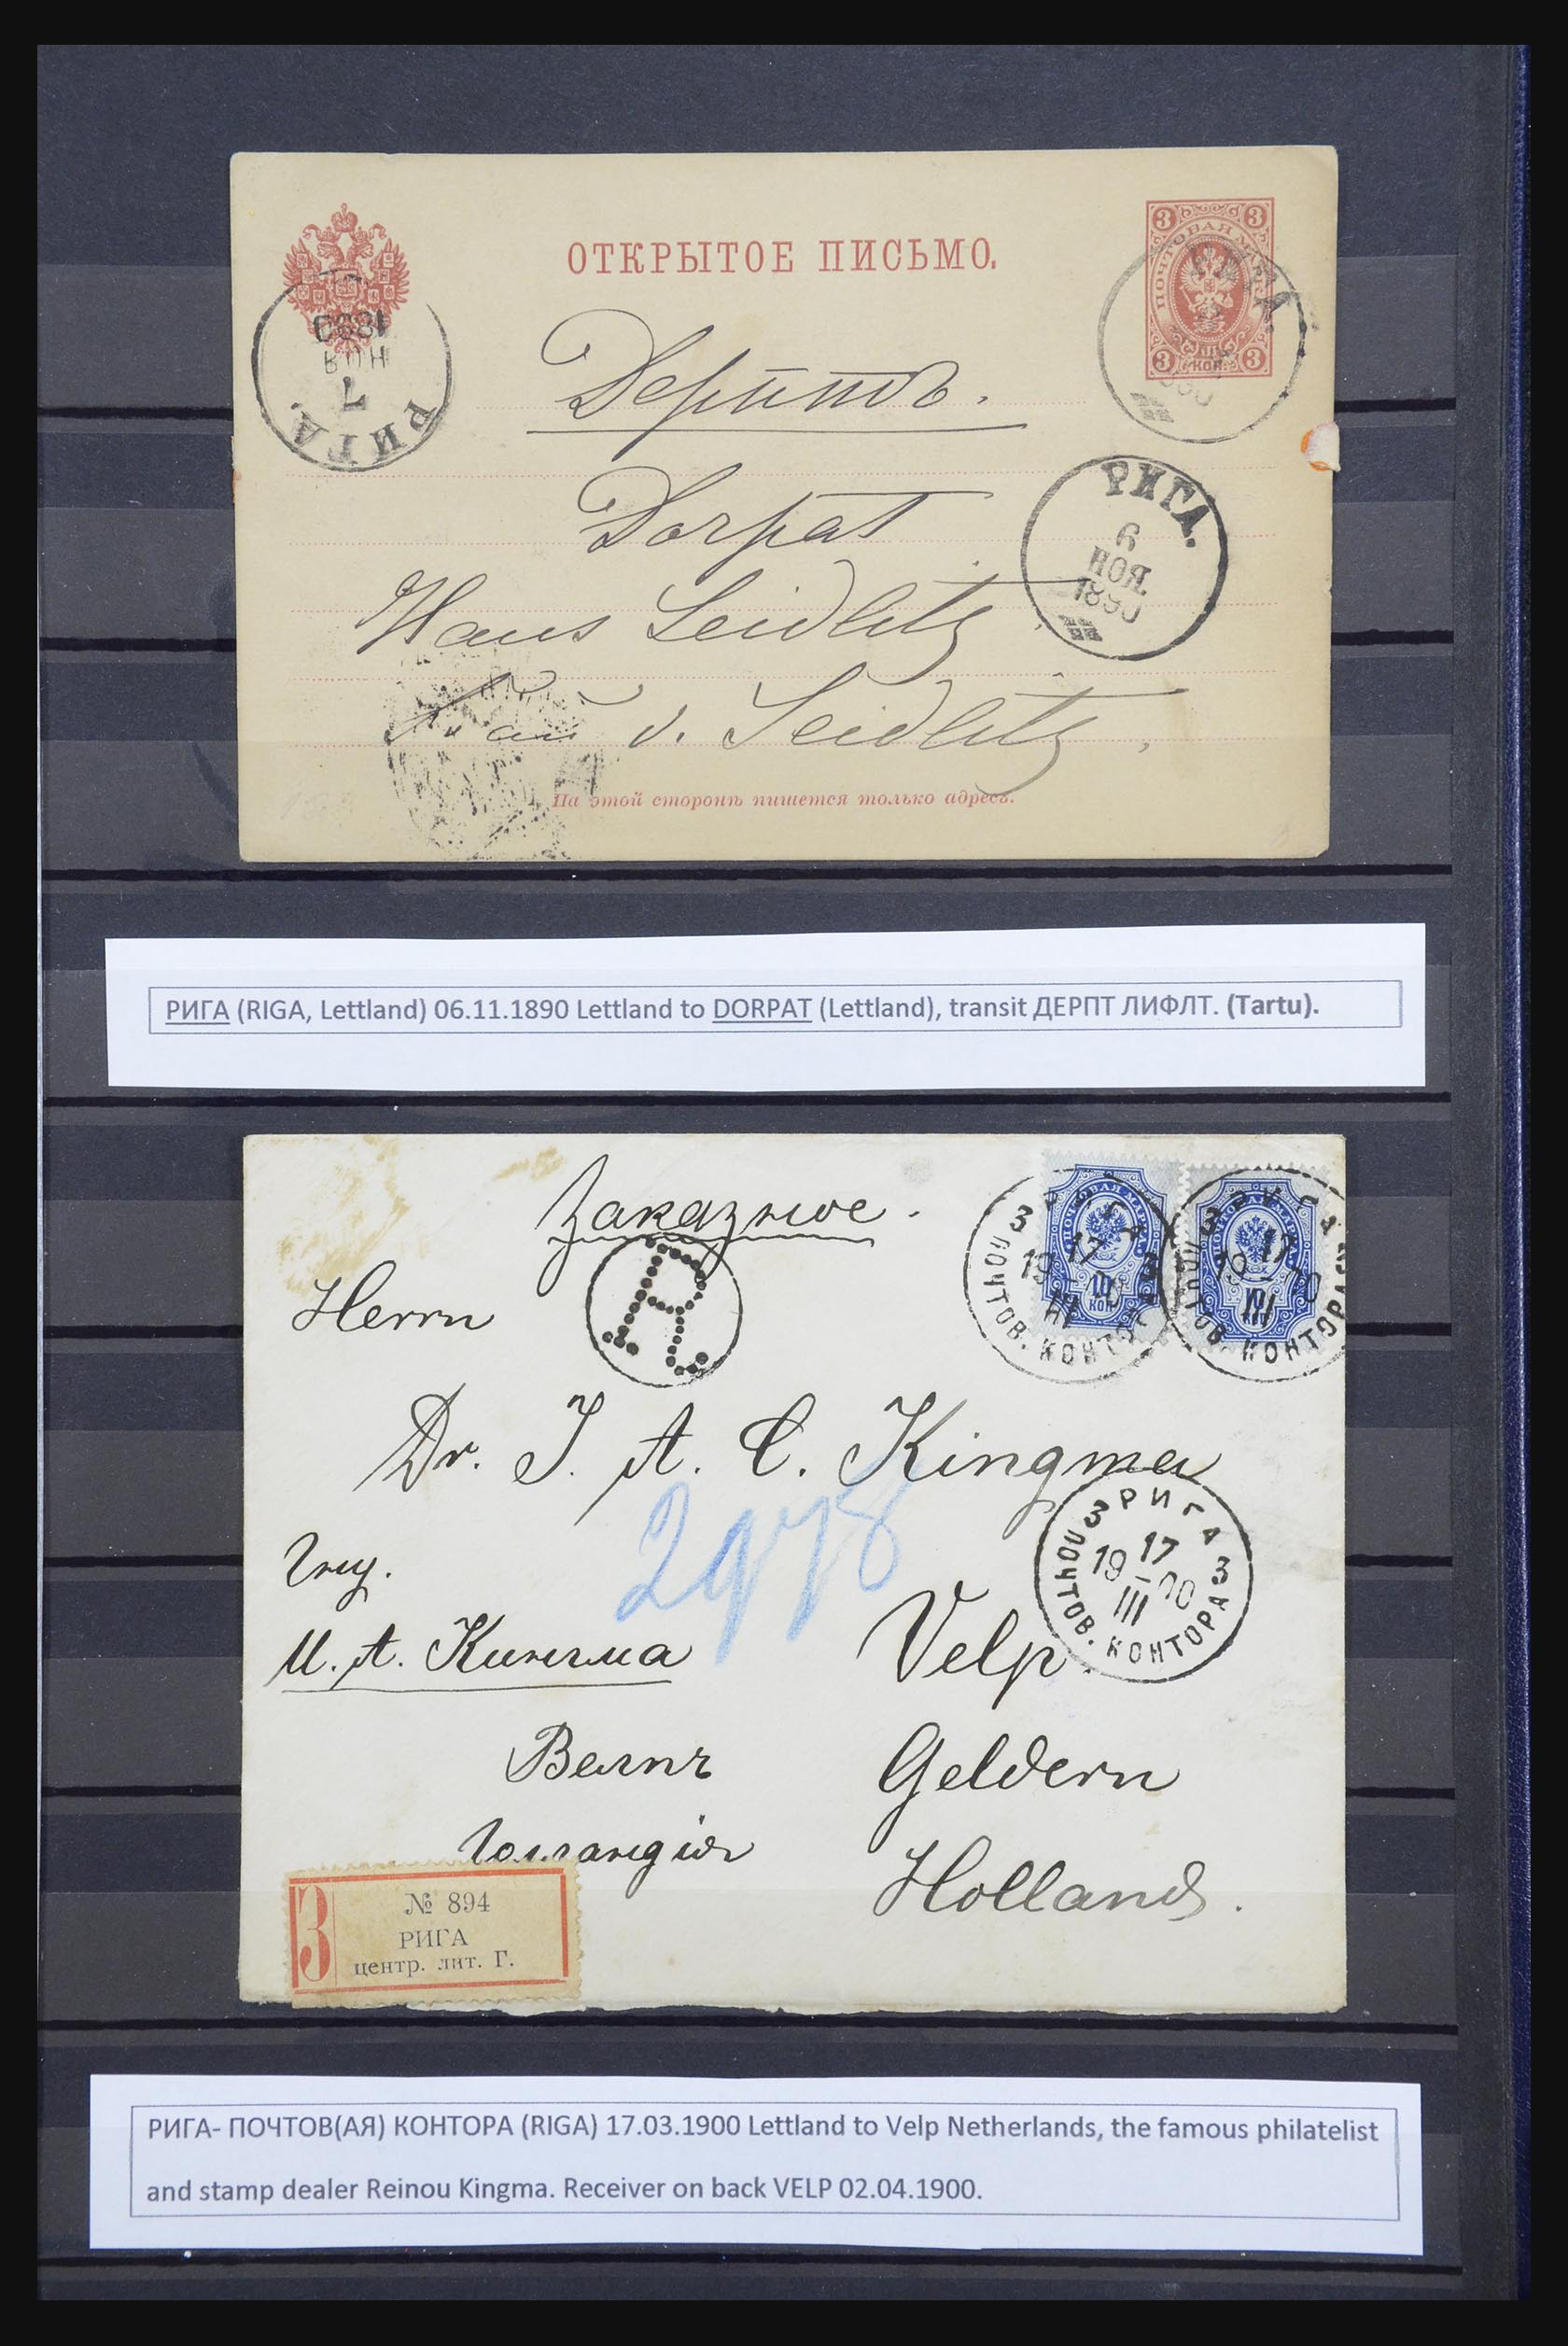 ОТКРЫТОЕ ПИСЬМО.
3 3
ПОЧТОВАЯ МАРКА
3 КОП. 3
РИГА
7
НОЯ
РИГА.
Дерптъ.
Dorpat
РИГА.
6
НОЯ.
1890
Hans Seidlitz
v. Seidlitz.
На этой сторонѣ пишется только адресъ.
РИГА (RIGA, Lettland) 06.11.1890 Lettland to DORPAT (Lettland), transit ДЕРПТ ЛИФЛТ. (Tartu).
Заказное.
R
РИГА
3 3
17
19–00
III
ПОЧТОВ. КОНТОРА
ПОЧТОВАЯ МАРКА
10
КОП
РИГА
3
17
19–00
III
ПОЧТОВ. КОНТОРА
10
Herrn
Dr. J. A. C. Kingma
РИГА
3 3
17
19–00
III
ПОЧТОВ. КОНТОРА
Гну.
И. А. Кингма
Velp.
Велпъ
Geldern
Голландія
Holland.
З
№ 894
РИГА
центр. лит. Г.
РИГА- ПОЧТОВ(АЯ) КОНТОРА (RIGA) 17.03.1900 Lettland to Velp Netherlands, the famous philatelist
and stamp dealer Reinou Kingma. Receiver on back VELP 02.04.1900.